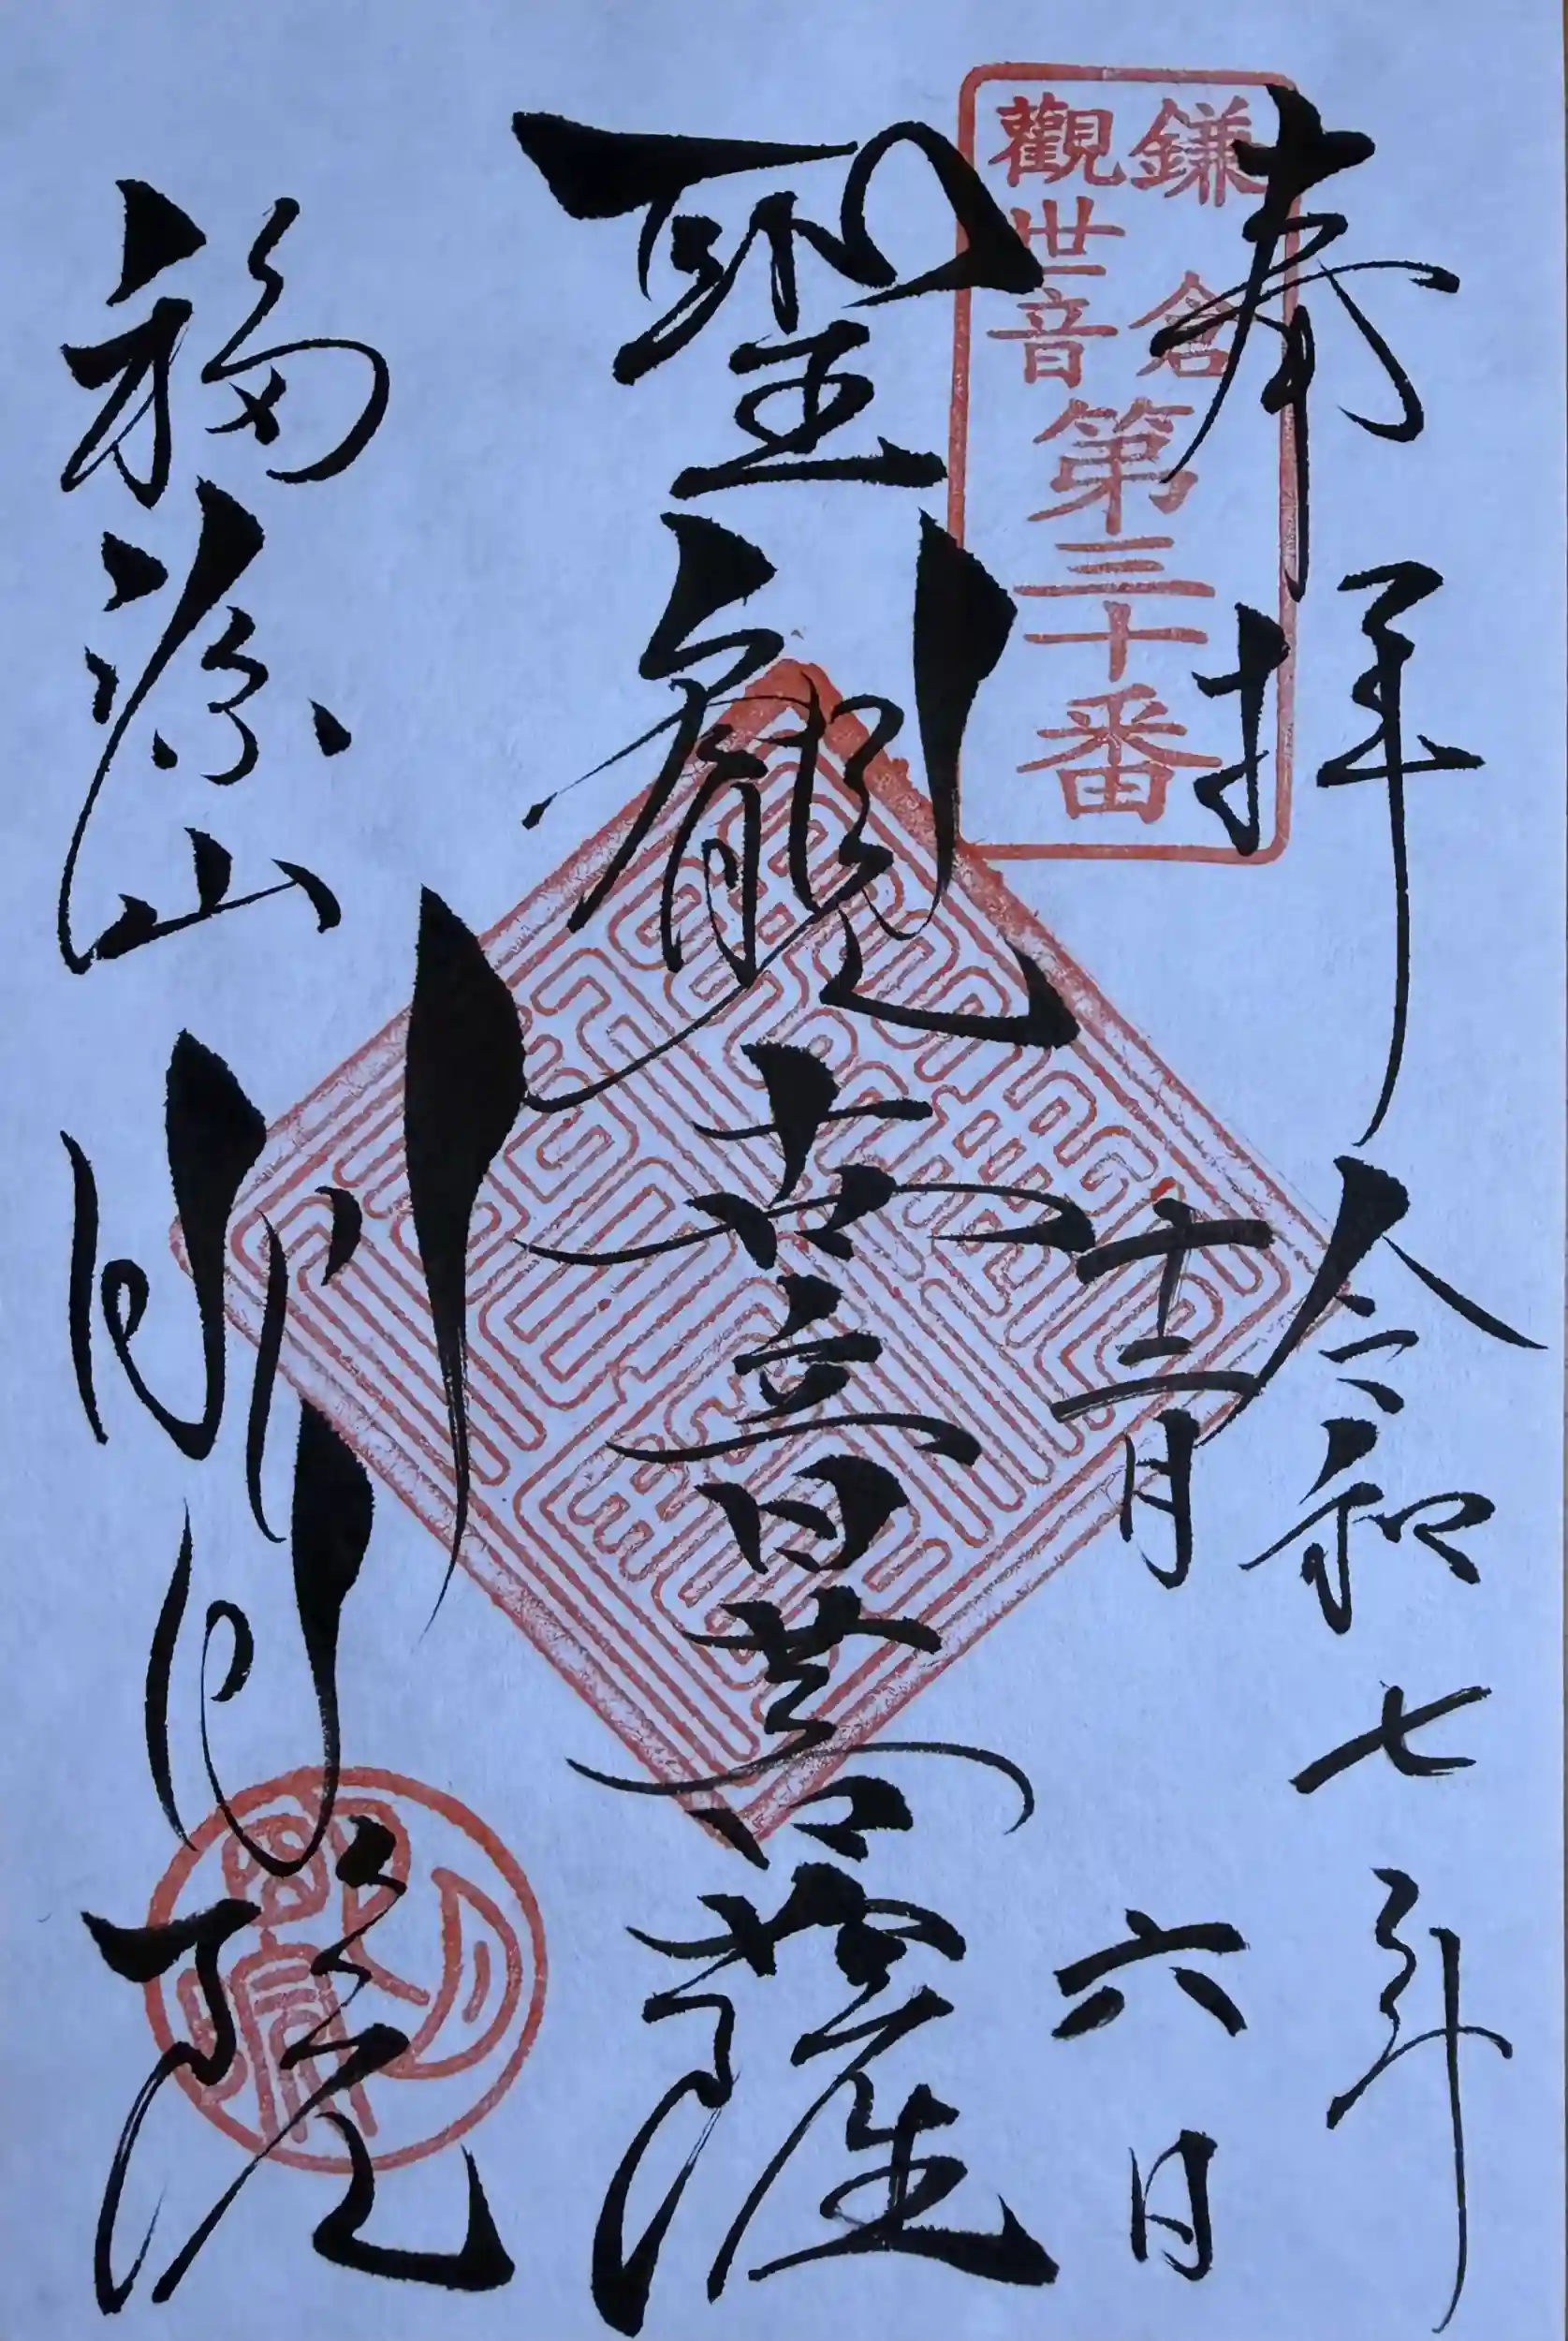 奉拝
令和七年
十二月六日
鎌倉
觀世音
第三十番
聖観世音菩薩
福源山
明月院